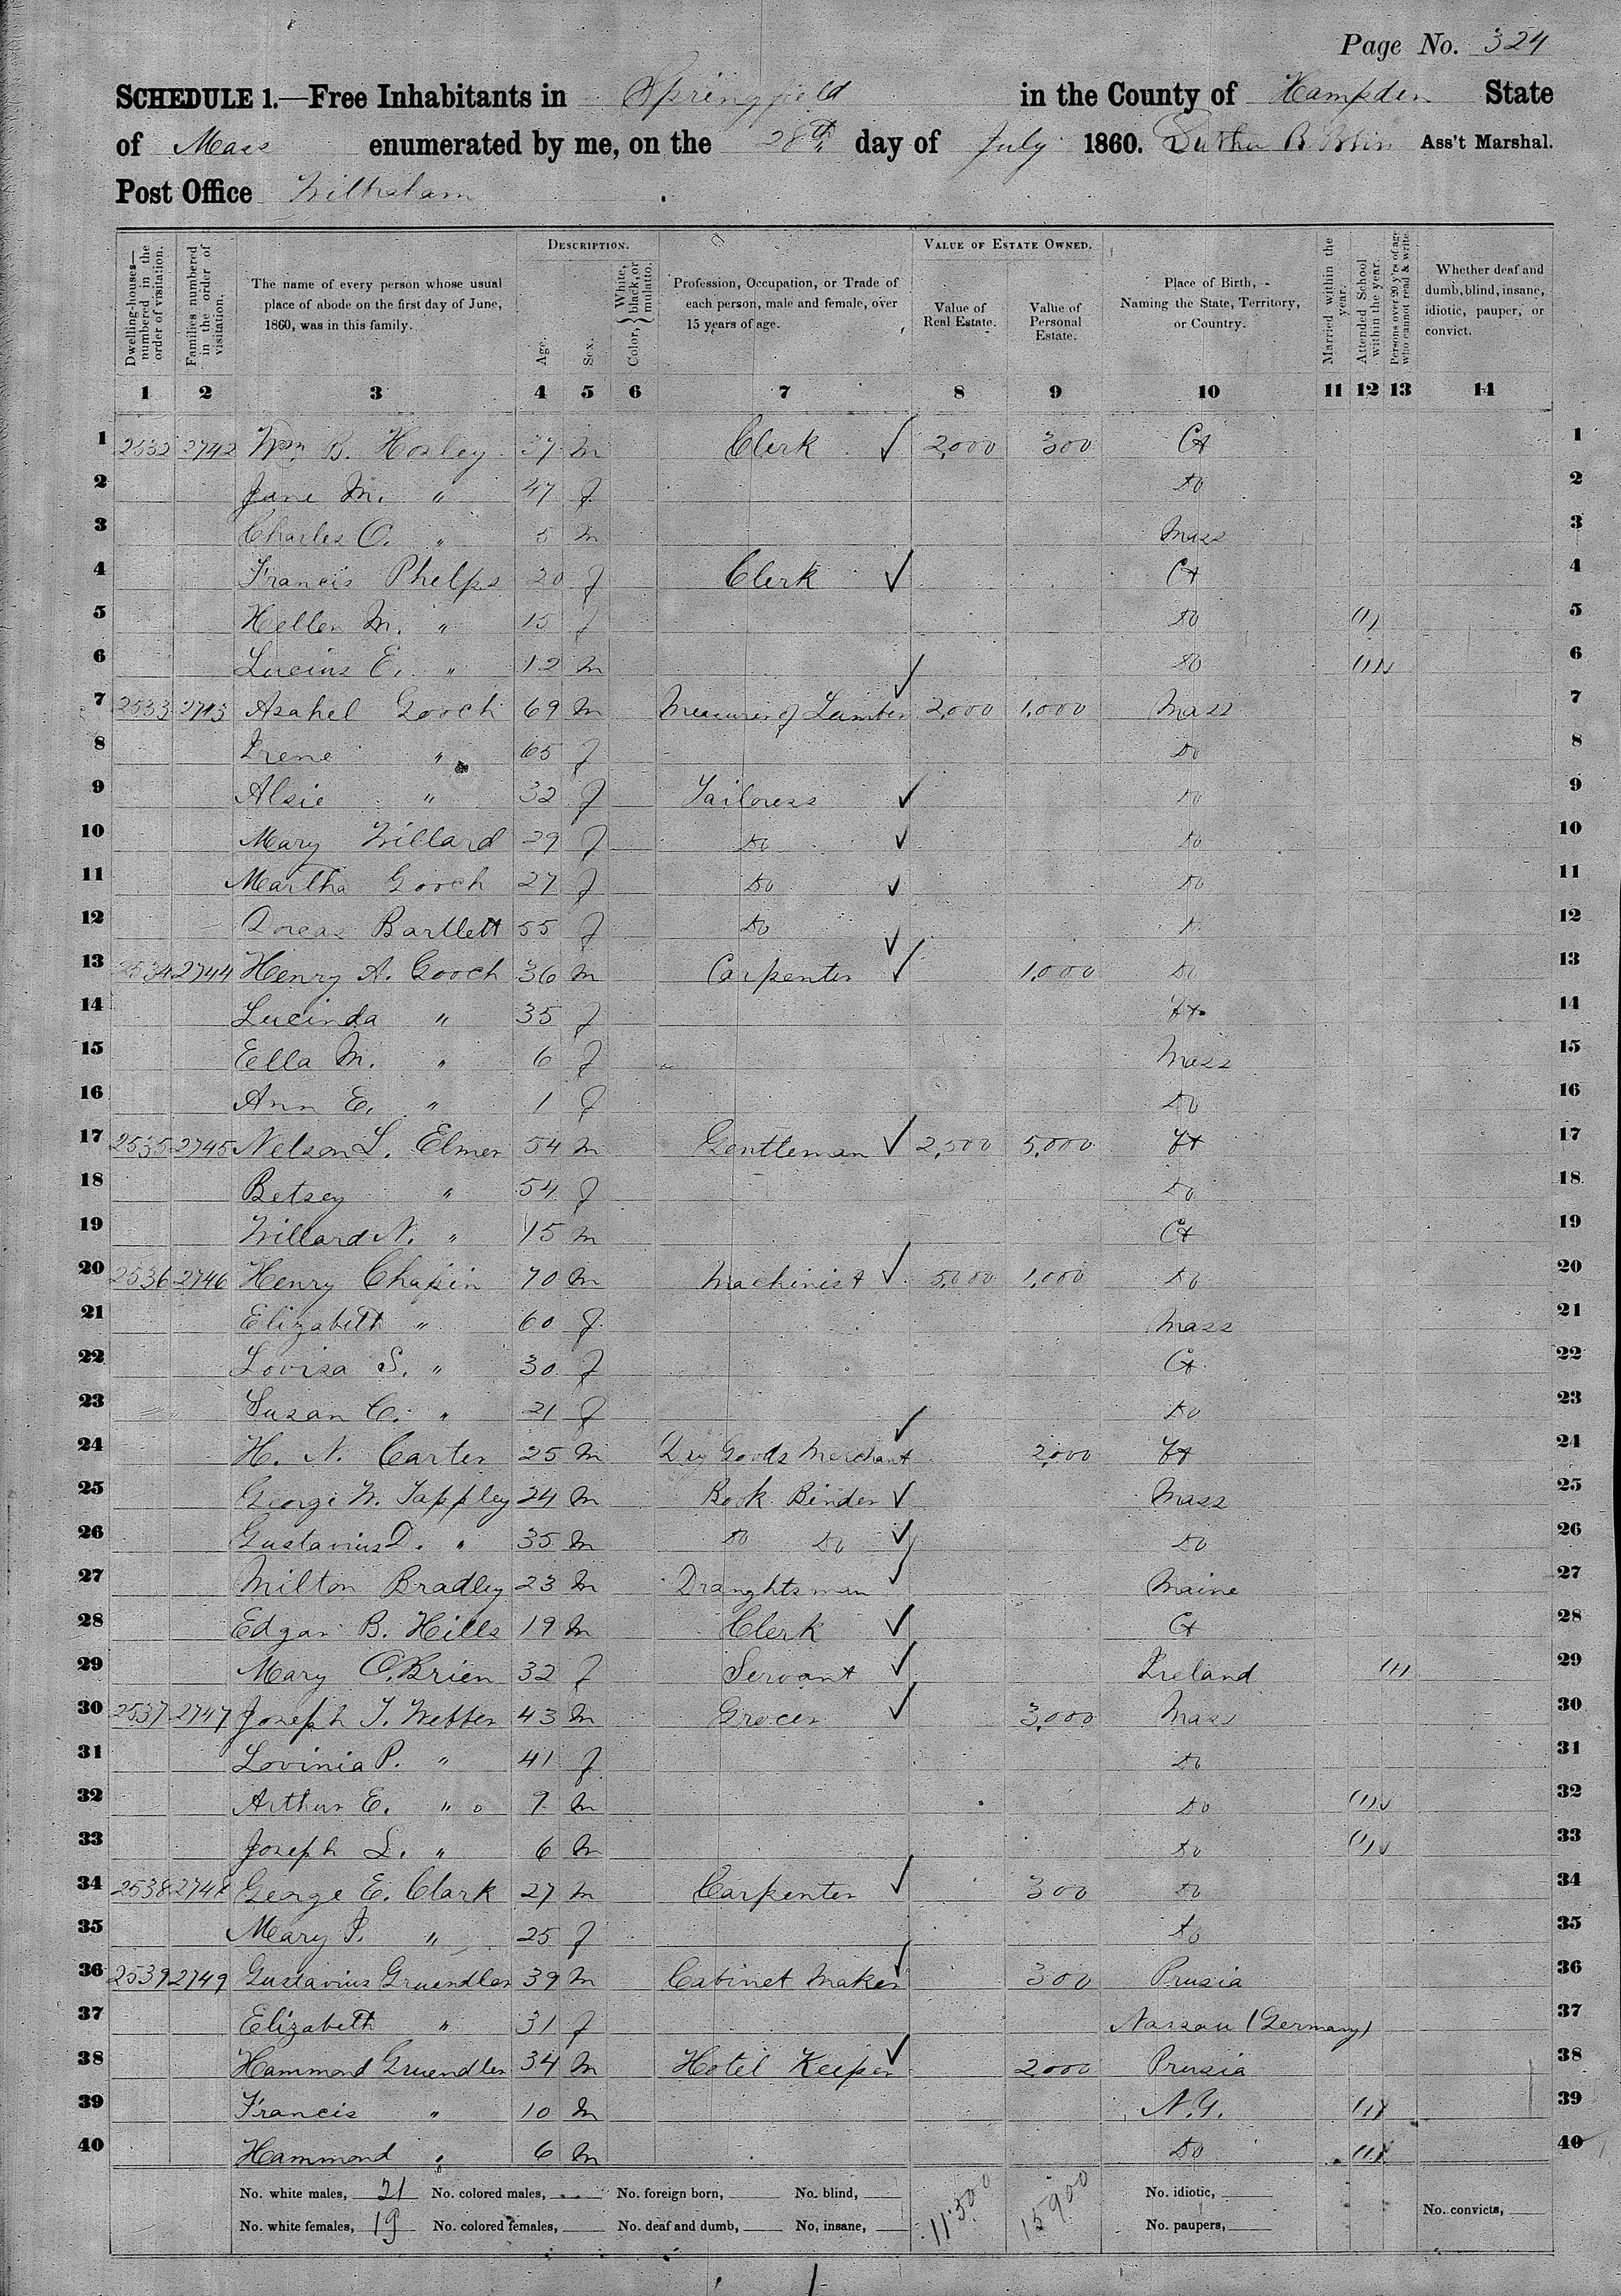 Page No. 324
SCHEDULE 1.—Free Inhabitants in Springfield in the County of Hampden State
of Mass enumerated by me, on the 28th day of July 1860. Ass't Marshal.
Post Office Wilbraham
Dwelling-houses—numbered in the order of visitation.
Families numbered in the order of visitation.
The name of every person whose usual place of abode on the first day of June, 1860, was in this family.
DESCRIPTION.
Age.
Sex.
Color, } White, black, or mulatto.
Profession, Occupation, or Trade of each person, male and female, over 15 years of age.
VALUE OF ESTATE OWNED.
Value of Real Estate.
Value of Personal Estate.
Place of Birth, Naming the State, Territory, or Country.
Married within the year.
Attended School within the year.
Persons over 20 y'rs of age who cannot read & write.
Whether deaf and dumb, blind, insane, idiotic, pauper, or convict.
1 2 3 4 5 6 7 8 9 10 11 12 13 14
1 2532 2742 Wm. B. Hosley 37 m Clerk ✓ 2,000 300 Ct 1
2 Jane M. " 47 f Do 2
3 Charles O. " 5 m Mass 3
4 Francis Phelps 20 f Clerk ✓ Ct 4
5 Hellen M. " 15 f Do (1) 5
6 Lucius E. " 12 m Do (1) 6
7 2533 2743 Asahel Gooch 69 m Measurer of Lumber ✓ 2,000 1,000 Mass 7
8 Irene " 65 f Do 8
9 Alsie " 32 f Tailoress ✓ Do 9
10 Mary Willard 29 f Do ✓ Do 10
11 Martha Gooch 27 f Do ✓ Do 11
12 Dorcas Bartlett 55 f Do ✓ 12
13 2534 2744 Henry A. Gooch 36 m Carpenter ✓ 1,000 Do 13
14 Lucinda " 35 f Vt. 14
15 Eella M. " 6 f Mass 15
16 Ann E. " 1 f Do 16
17 2535 2745 Nelson L. Elmer 54 m Gentleman ✓ 2,500 5,000 Vt 17
18 Betsey " 54 f Do 18
19 Willard N. " 15 m Ct 19
20 2536 2746 Henry Chapin 70 m Machinist ✓ 5,000 1,000 Do 20
21 Elizabeth " 60 f Mass 21
22 Lovisa S. " 30 f Ct 22
23 Susan C. " 21 f Do 23
24 H. N. Carter 25 m Dry Goods Merchant ✓ 2,000 Vt 24
25 George W. Tappley 24 m Book Binder ✓ Mass 25
26 Gustavius D. " 35 m Do Do ✓ Do 26
27 Milton Bradley 23 m Draughtsman ✓ Maine 27
28 Edgar B. Hills 19 m Clerk ✓ Ct 28
29 Mary O.Brien 32 f Servant ✓ Ireland (1) 29
30 2537 2747 Joseph T. Webber 43 m Grocer ✓ 3,000 Mass 30
31 Lovinia P. " 41 f Do 31
32 Arthur E. " 9 m Do (1) 32
33 Joseph L. " 6 m Do (1) 33
34 2538 2748 George E. Clark 27 m Carpenter ✓ 300 Do 34
35 Mary P. " 25 f Do 35
36 2539 2749 Gustavius Gruendler 39 m Cabinet Maker ✓ 300 Prusia 36
37 Elizabeth " 31 f Nassau (Germany) 37
38 Hammond Gruendler 34 m Hotel Keeper ✓ 2000 Prusia 38
39 Francis " 10 m N.Y. (1) 39
40 Hammond " 6 m Do (1) 40
No. white males, 21 No. colored males, No. foreign born, No. blind, 11,500 15,900 No. idiotic, No. convicts,
No. white females, 19 No. colored females, No. deaf and dumb, No. insane, No. paupers,